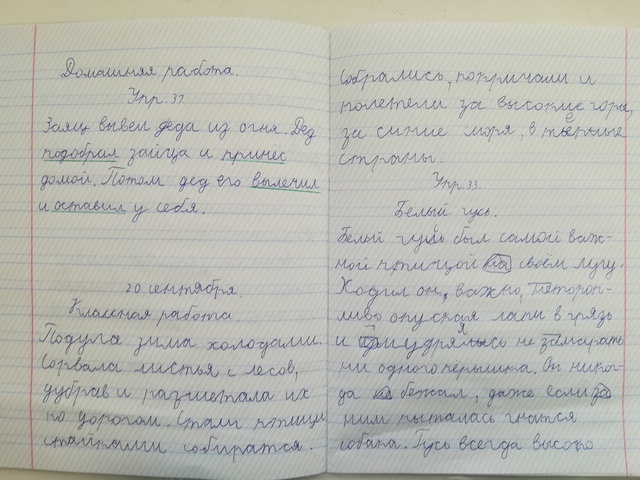 Домашняя работа.
Упр. 37.
Заяц вывел деда из огня. Дед
подобрал зайца и принес
домой. Потом дед его вылечил
и оставил у себя.
20 сентября.
Классная работа
Подула зима холодами.
Сорвала листья с лесов,
дубрав и разметала их
по дорогам. Стали птицы
стайками собиратся.
Собрались, покричали и
полетели за высокие горы,
за синие моря, в теплые
страны.
Упр. 33.
Белый гусь.
Белый гусь был самой важ-
ной птицой на своём лугу.
Ходил он, важно, нетороп-
ливо опуская лапы в грязь
и умудрялясь не замарать
ни одного пёрышка. Он нико-
да не бежал, даже если за
ним пыталась гнатся
собака. Гусь всегда высоко